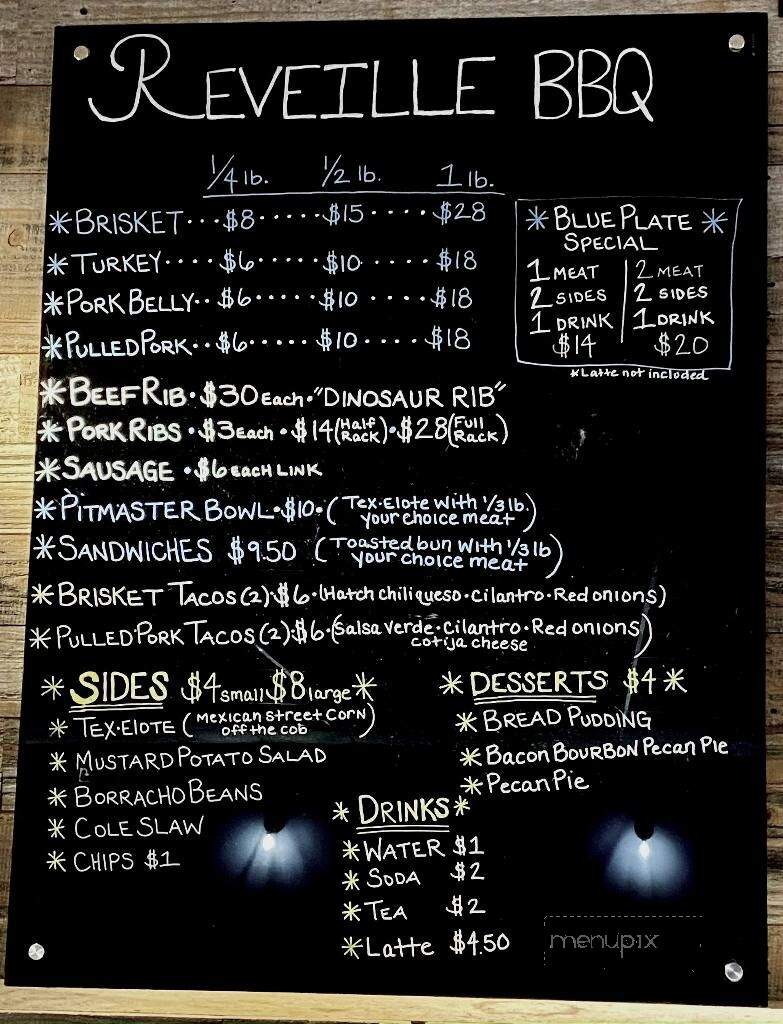 REVEILLE BBQ
1/4 lb. 1/2 lb. 1 lb.
*BRISKET···$8·····$15····$28
*TURKEY····$6·····$10····$18
*PORK BELLY··$6·····$10····$18
*PULLED PORK··$6·····$10····$18
*BLUE PLATE*
SPECIAL
1 MEAT 2 MEAT
2 SIDES 2 SIDES
1 DRINK 1 DRINK
$14 $20
*Latte not included
*BEEF RIB·$30 Each·"DINOSAUR RIB"
*PORK RIBS·$3 Each·$14 (Half Rack)·$28 (Full Rack)
*SAUSAGE·$6 EACH LINK
*PITMASTER BOWL·$10·(Tex-Elote with 1/3 lb.
your choice meat)
*SANDWICHES $9.50 (Toasted bun with 1/3 lb
your choice meat)
*BRISKET TACOS (2)·$6·(Hatch chili queso·cilantro·Red onions)
*PULLED·PORK TACOS (2)·$6·(Salsa verde·cilantro·Red onions
cotija cheese)
*SIDES $4 small $8 large*
*TEX·ElOTE (Mexican Street Corn
off the cob)
*MUSTARD POTATO SALAD
*BORRACHO BEANS
*COLE SLAW
*CHIPS $1
*DESSERTS $4*
*BREAD PUDDING
*Bacon BOURBON Pecan Pie
*Pecan Pie
*DRINKS*
*WATER $1
*SODA $2
*TEA $2
*Latte $4.50
menupix